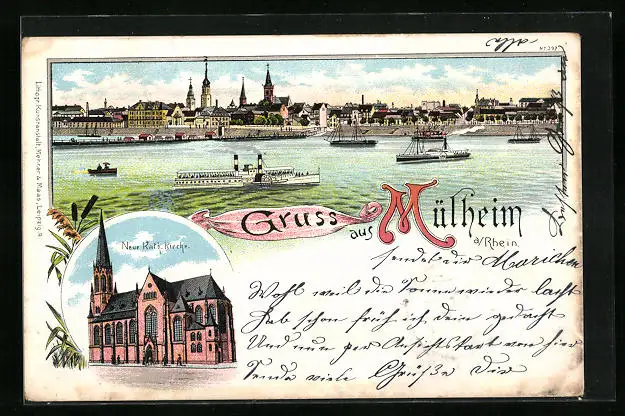 alle
Nr. 397
Lithogr. Kunstanstalt, Werner & Maas, Leipzig-R.
Gruss aus Mülheim
a/Rhein.
Neue Kath. Kirche.
sendet dir Marichen
Wohl weil die Sonne wieder lacht
Hab schon früh ich dein gedacht
Und nun per Ansichtskart von hier
Sende viele Grüße Dir